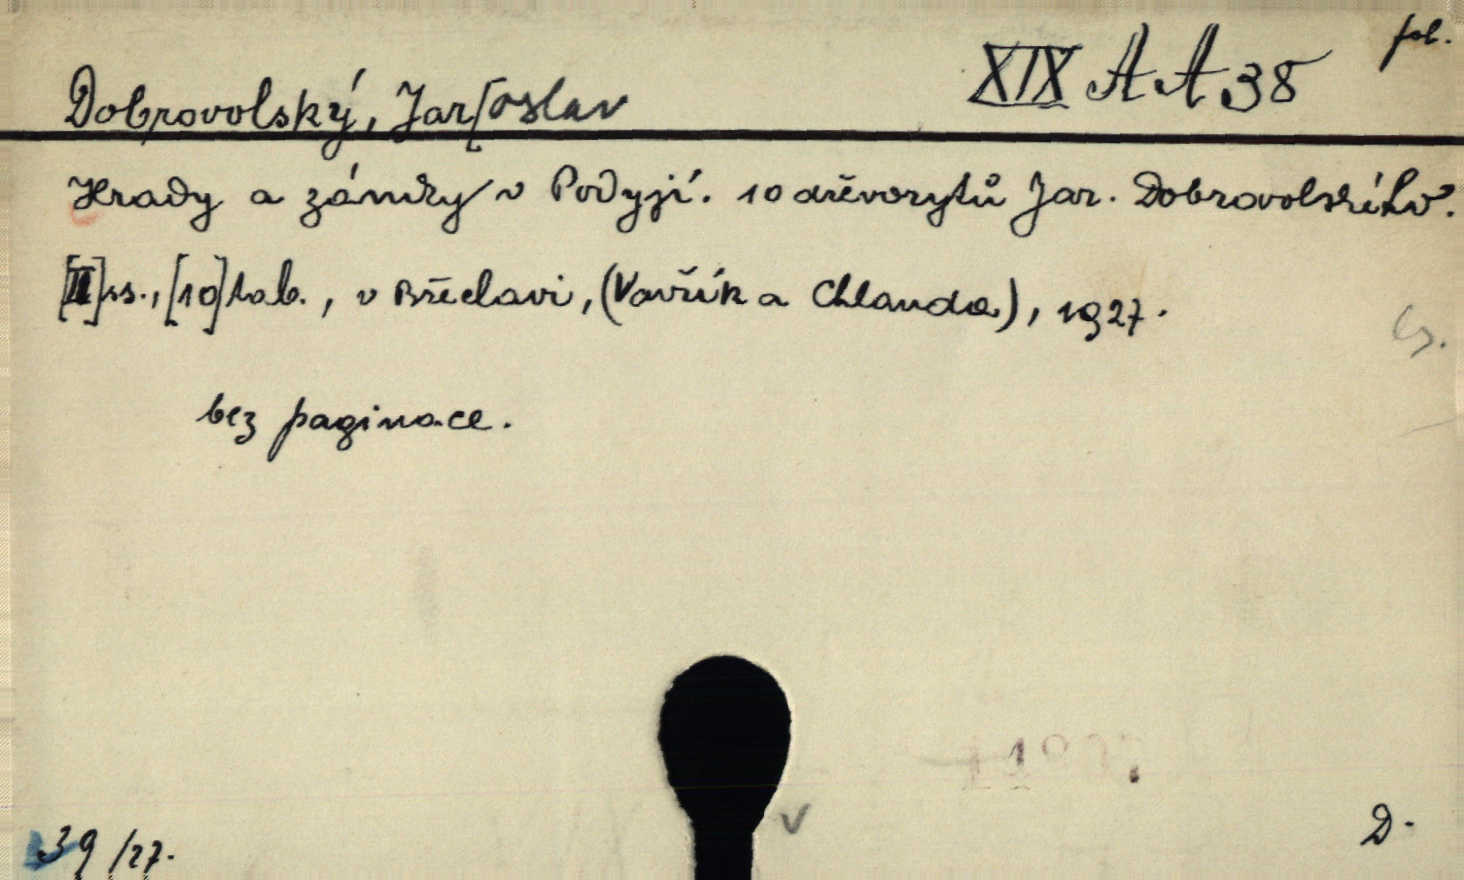 fol.
XIX AA 38
Dobrovolský, Jar[oslav
Hrady a zámky v Podyjí. 10 dřevorytů Jar. Dobrovolského.
[II] ss., [10] tab., v Břeclavi, (Vavřík a Chlanda), 1927.
bez paginace.
39/27.
D.